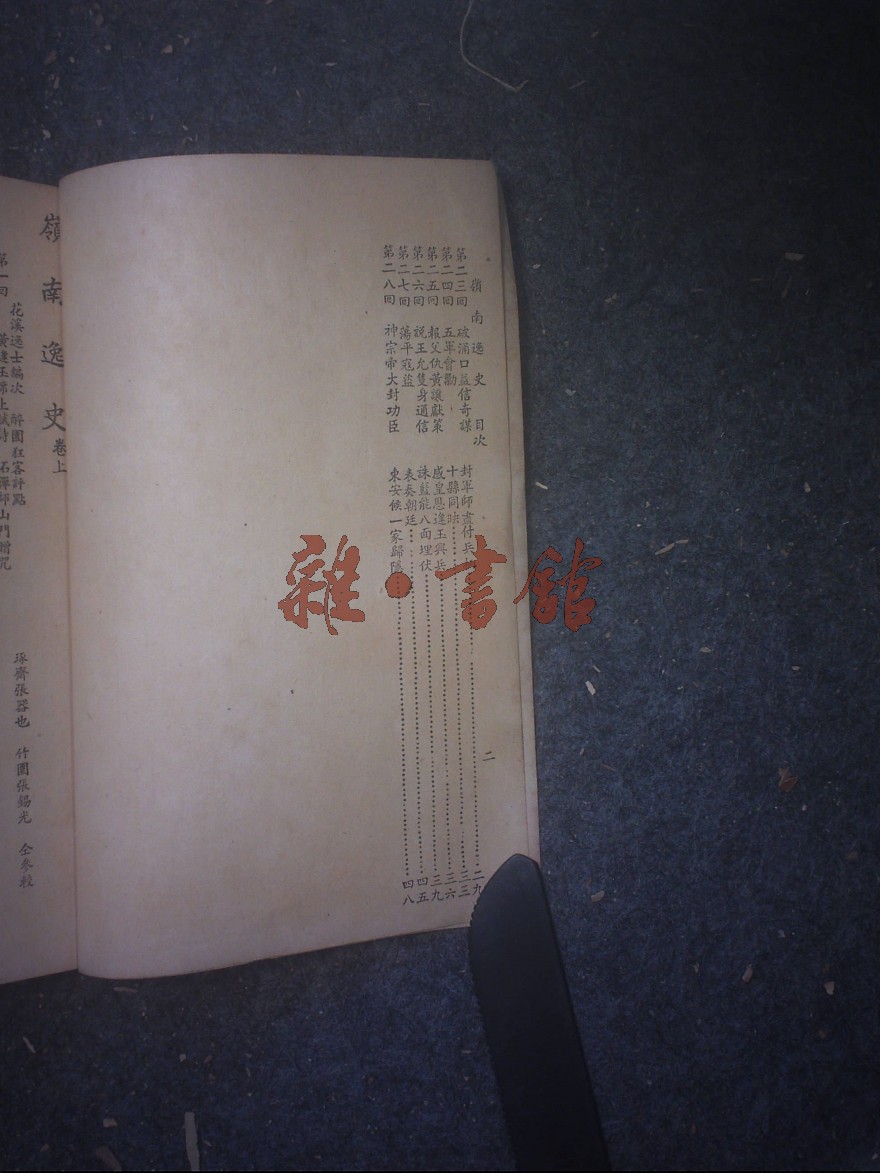 嶺南逸史 目次
第二三回 破涌口益信奇謀 封軍師盡付兵
二九
第二四回 五軍會勦 十縣同
三三
第二五回 報父仇黃讓獻策 感皇恩進玉興兵
三六
第二六回 說王允隻身通信 誅藍能八面埋伏
三九
第二七回 蕩平寇盜 表奏朝廷
四五
第二八回 神宗帝大封功臣 東安侯一家歸隱
四八
二
雜·書館
嶺南逸史 卷上
花溪逸士編次 醉園狂客評點
琢齋張器也 竹園張錫光 仝參校
第一回 黃逢玉席上賦詩 石禪師山門贈咒